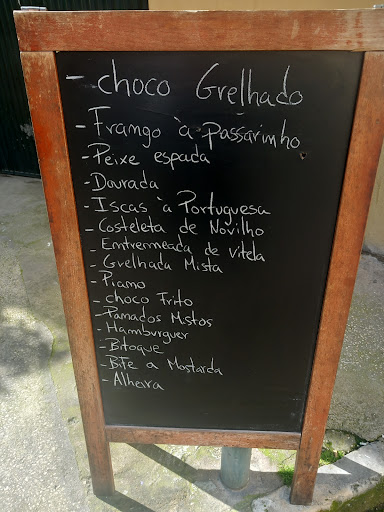 - choco Grelhado
- Frango à Passarinho
- Peixe espada
- Dourada
- Iscas à Portuguesa
- Costeleta de Novilho
- Emtremeada de vitela
- Grelhada Mista
- Piano
- choco Frito
- Panados Mistos
- Hamburguer
- Bitoque
- Bife a Mostarda
- Alheira